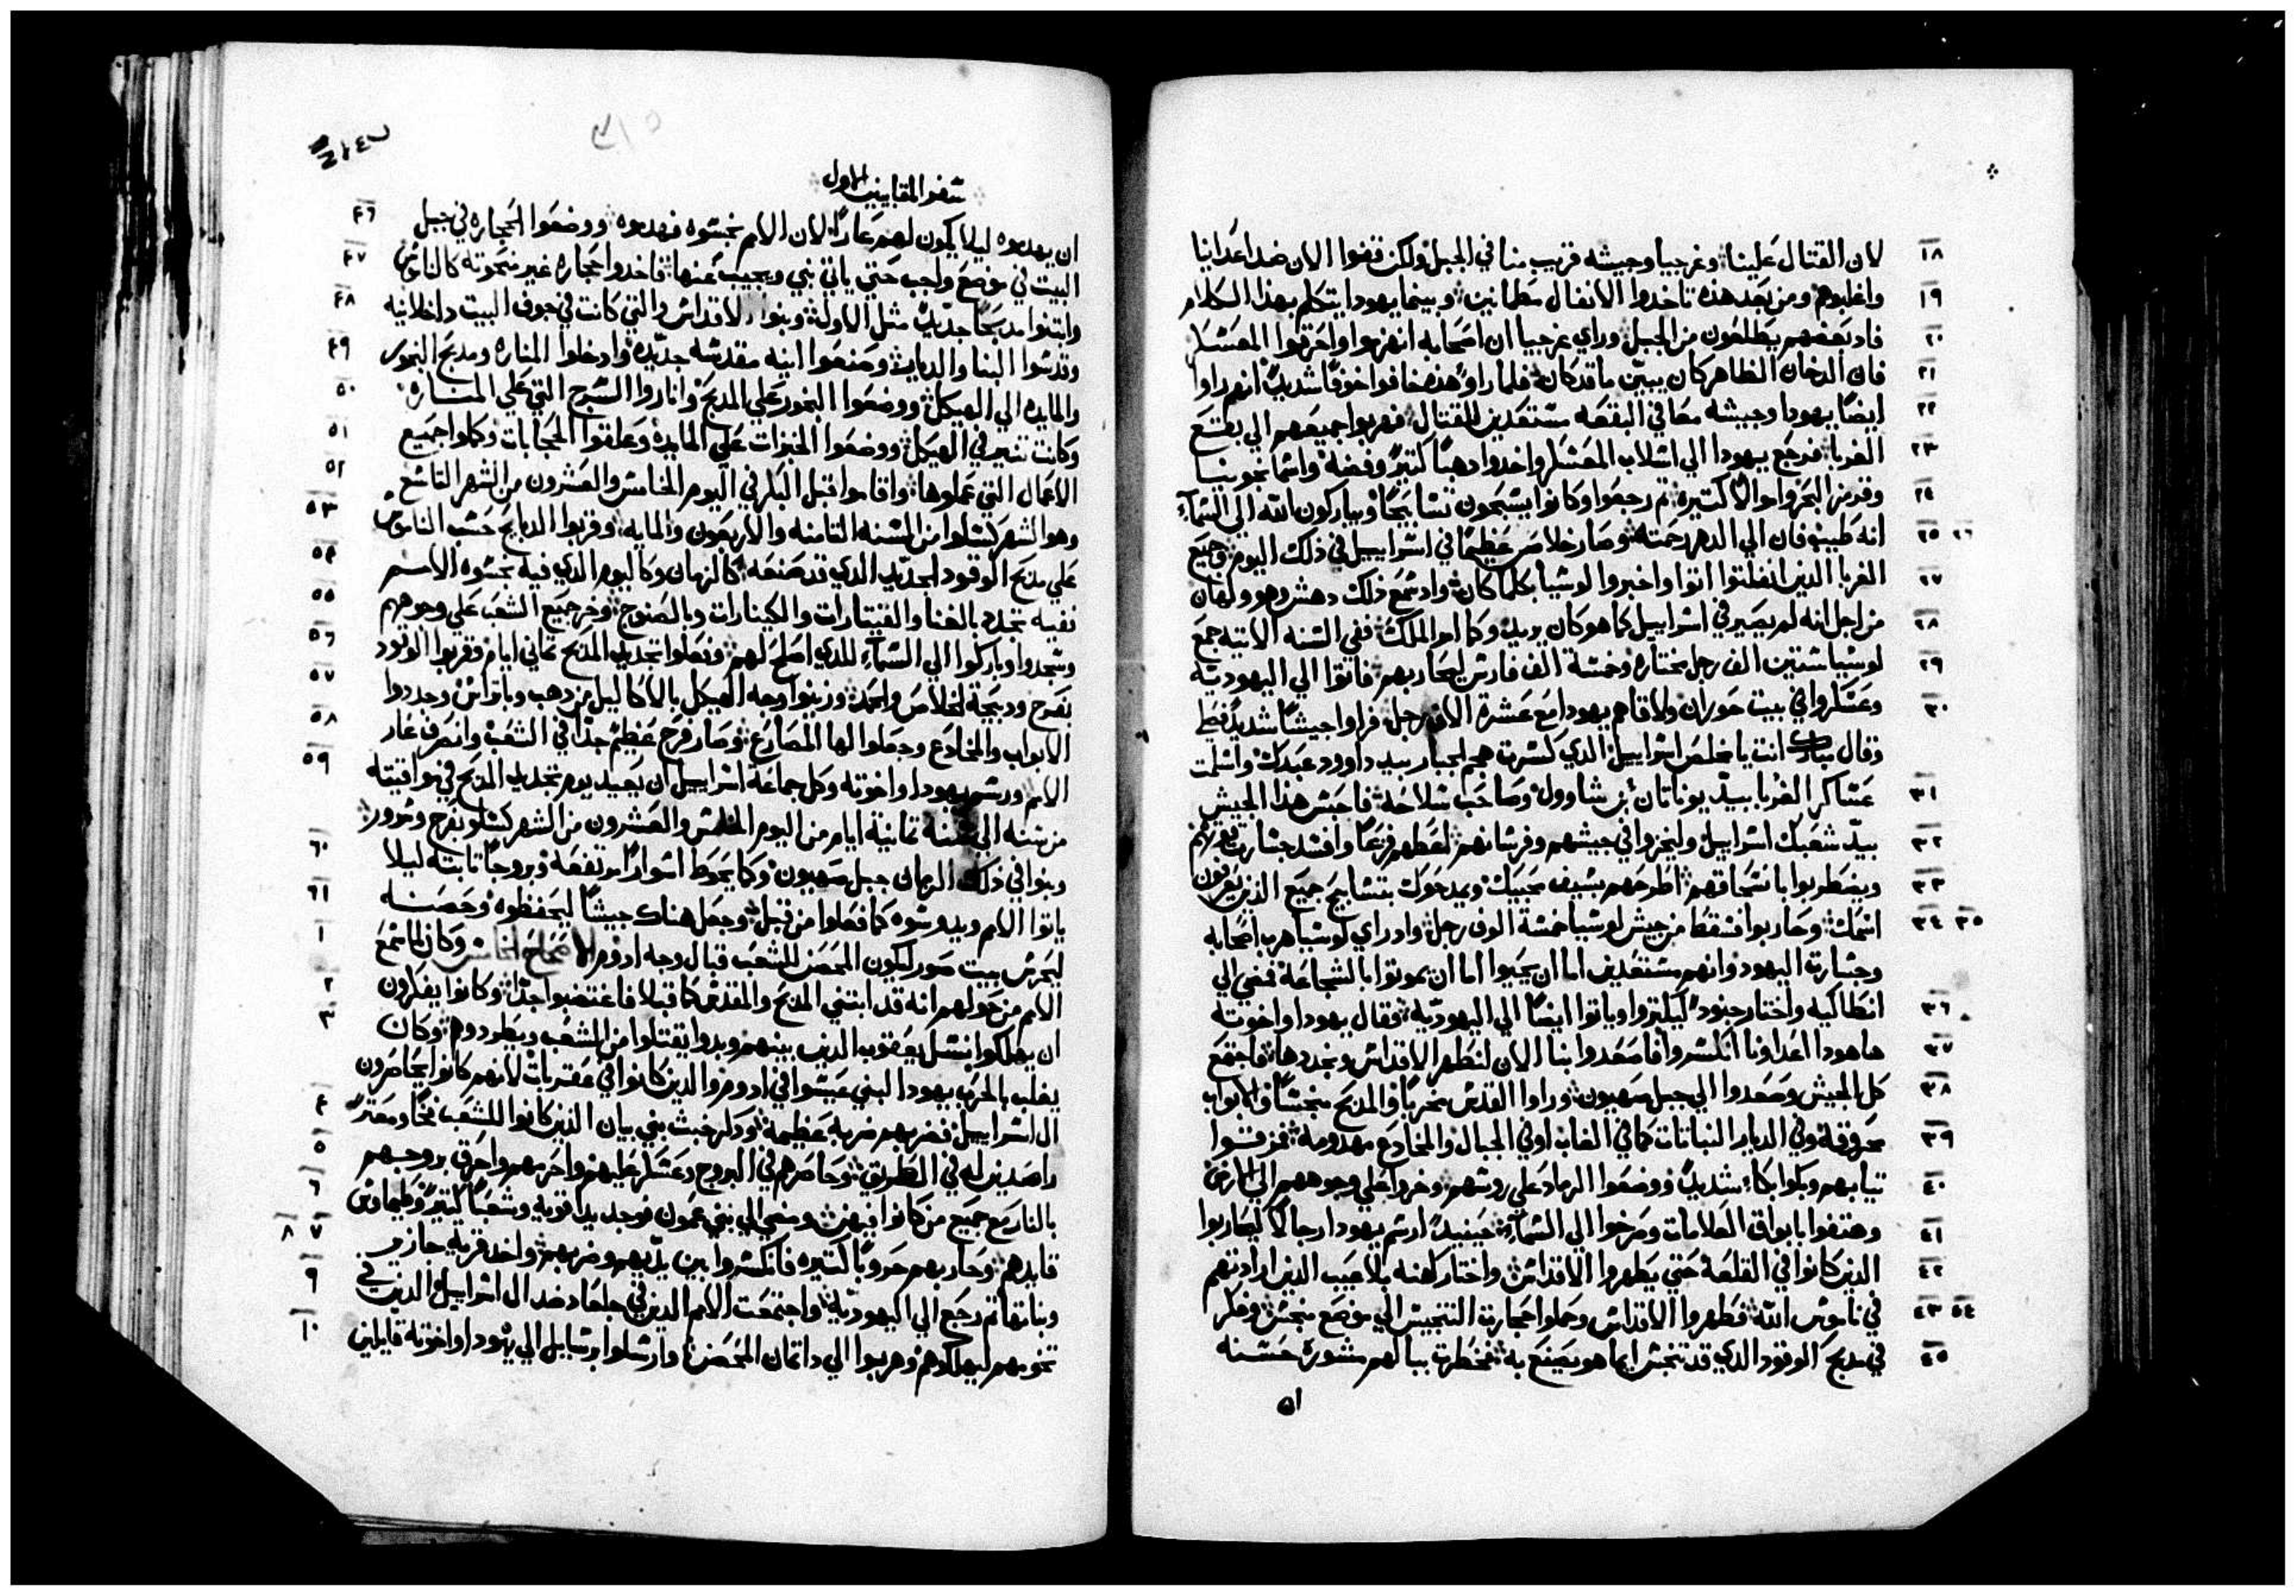 ١٨ لان القتال علينا وغرجيا وجيشه قريب منا في الجبل ولكن قفوا الان ضد اعداينا
١٩ واغلبوهم ومن بعد هذه تاخدوا الانفال مطمانين وبينما يهودا يتكلم بهذا الكلام
٢٠ فاد بعضهم يطلعون من الجبل وراي غرجيا ان اصحابه انهزموا واحرقوا المعسكر
٢١ فان الدخان الظاهر كان يبين ما قد كان فلما راوا هذه خافوا خوفًا شديدًا انهم راوا
٢٢ ايضًا يهودا وجيشه معا في البقعه مستعدين للقتال فهربوا جميعهم الي بقع
٢٣ الغربا فرجع يهودا الي اسلاب المعسكر واخدوا دهبًا كتيرًا وفضة واسمانجونيا
٢٤ وقرمز البحر واموالًا كتيرة تم رجعوا وكانوا يسبحون تسابيحًا ويباركون الله الي السماء
٢٥ ٢٦ انه طيب فان الي الدهر رحمته وصار خلاص عظيمًا في اسراييل في ذلك اليوم وجميع
٢٧ الغربا الدين انفلتوا اتوا واخبروا لوسيا بكلما كان واد سمع ذلك دهش وهو ولهان
٢٨ من اجل انه لم يصير في اسراييل كما هو كان يريد وكما امر الملك ففي السنه الاتيه جمع
٢٩ لوسيا ستين الف رجل مختاره وخمسة الف فارس ليحاربهم فاتوا الي اليهودية
٣٠ وعسكروا في بيت حوران ولاقاهم يهودا مع عشرة الاف رجل فراوا جيشًا شديدًا فصلي
وقال مبارك انت يا مخلص اسراييل الدي كسرت هجم الجبار بيد داوود عبدك واسلمت
٣١ عساكر الغربا بيد يوناتان بن شاوول وصاحب سلاحه فاحبس هذا الجيش
٣٢ بيد شعبك اسراييل وليخزوا في جيشهم وفرسانهم اعطهم فزعًا وافسد جسارة قوتهم
٣٣ ويضطربوا بانسحاقهم اطرحهم بسيف محبيك ويمدحوك بتسابيح جميع الدين يعرفون
٣٤ ٣٥ اسمك وحاربوا فسقط من جيش لوسيا خمسة الوف رجل واد راي لوسيا هرب اصحابه
وجسارة اليهود وانهم مستعدين اما ان يحيوا اما ان يموتوا بالشجاعة فمضي الي
٣٦ انطاكيه واختار جنودًا ليكتروا وياتوا ايضًا الي اليهودية فقال يهودا واخوته
٣٧ هاهودا اعداونا انكسروا فاصعدوا بنا الان لنطهر الاقداس ونجددها فاجتمع
٣٨ كل الجيش وصعدوا الي جبل صهيون وراوا القدس مخربًا والمدبح منجسًا والابواب
٣٩ محروقة وفي الديار النباتات كما في الغاب او في الجبال والمخادع مهدومة فمزقوا
٤٠ تيابهم وبكوا بكاء شديدًا ووضعوا الرماد علي روسهم وخروا علي وجوههم الي الارض
٤١ وهتفوا بابواق العلامات وصرخوا الي السماء حينيد ارسم يهودا رجالًا ليحاربوا
٤٢ الدين كانوا في القلعة حتي يطهروا الاقداس واختار كهنه بلا عيب الدين ارادتهم
٤٣ ٤٤ في ناموس الله فطهروا الاقداس وحملوا حجارة التنجيس الي موضع منجس وفكر
٤٥ في مدبح الوقود الدي قد تنجس ايما هو يصنع به فخطرت ببالهم مشورة حسنه
ان
سفر المقابيين الاول
٤٦ ان يهدموه ليلا يكون لهم عارًا لان الامم نجسوه فهدموه ووضعوا الحجاره في جبل
٤٧ البيت في موضع واجب حتي ياتي نبي ويجيب عنها فاخدوا حجاره غير منحوته كالناموس
٤٨ وابتنوا مدبحًا جديدًا مثل الاولة وبنوا الاقداس والتي كانت في جوف البيت داخلانيه
٤٩ وقدسوا البنا والديار وصنعوا انيه مقدسه جديدة وادخلوا المناره ومدبح البخور
٥٠ والمايده الي الهيكل ووضعوا البخور علي المدبح واناروا السرج التي علي المناره
٥١ وكانت تنير في الهيكل ووضعوا الخبزات علي المايدة وعلقوا الحجابات وكملوا جميع
٥٢ الاعمال التي عملوها واقاموا قبل البكر في اليوم الخامس والعشرون من الشهر التاسع
٥٣ وهو الشهر كسلو من السنه التامنه والاربعون والمايه وقربوا الدبايح حسب الناموس
٥٤ علي مدبح الوقود الجديد الدي قد صنعه كالزمان وكاليوم الدي فيه نجسوه الامم
٥٥ ففيه تجدد بالغنا والقيتارات والكينارات وبالصنوج وخر جميع الشعب علي وجوههم
٥٦ وسجدوا وباركوا الي السماء للدي اصلح لهم وفعلوا تجديد المدبح تماني ايام وقربوا الوقود
٥٧ بفرح ودبيحة الخلاص والحمد وزينوا وجه الهيكل بالاكاليل من دهب وباتراس وجددوا
٥٨ الابواب والمخادع وجعلوا لها المصارع وصار فرح عظيم جدًا في الشعب وانصرف عار
٥٩ الامم ورسم يهودا واخوته وكل جماعة اسراييل ان يعيد يوم تجديد المدبح في مواقيته
من سنه الي سنة تمانية ايام من اليوم الخامس والعشرون من الشهر كسلو بفرح وسرور
٦٠ وبنوا في ذلك الزمان جبل صهيون وكما يحوط اسوارًا مرتفعة وبروجًا تابته ليلا
٦١ ياتوا الامم ويدوسوه كما فعلوا من قبل وجعل هناك جيشًا ليحفظوه وحصنه
١ ليحرس بيت صور ليكون المحصن للشعب قبال وجه ادوم الاصحاح الخامس وكان لما سمع
٢ الامم من حولهم انه قد ابتني المدبح والمقدس كما قبلا فاغتضبوا جدًا وكانوا يفكرون
٣ ان يهلكوا نسل يعقوب الدين بينهم وبدوا يقتلوا من الشعب ويطردوهم وكان
يغلب بالحرب يهودا لبني عيسوا في ادوم والدين كانوا في عقربات لانهم كانوا يحاصرون
٤ ال اسراييل فضربهم ضربة عظيمة ودكر خبث بني بيان الدين كانوا للشعب فخًا ومعترة
٥ راصدين له في الطريق وحاصرهم في البروج وعسكر عليهم واحرمهم واحرق بروجهم
٦ بالنار مع جميع من كانوا فيهن ومضي الي بني عمون فوجد يدًا قويه وشعبًا كتيرًا وطيماوس
٧ ٨ قايدهم وحاربهم حروبًا كتيره فانكسروا بين يديهم وضربهم واخد قرية جازير
٩ وبناتها تم رجع الي اليهودية واجتمعت الامم الدين في جلعاد ضد ال اسراييل الدين في
١٠ تخومهم ليهلكوهم وهربوا الي داتمان المحصن وارسلوا برسايل الي يهودا واخوته قايلين